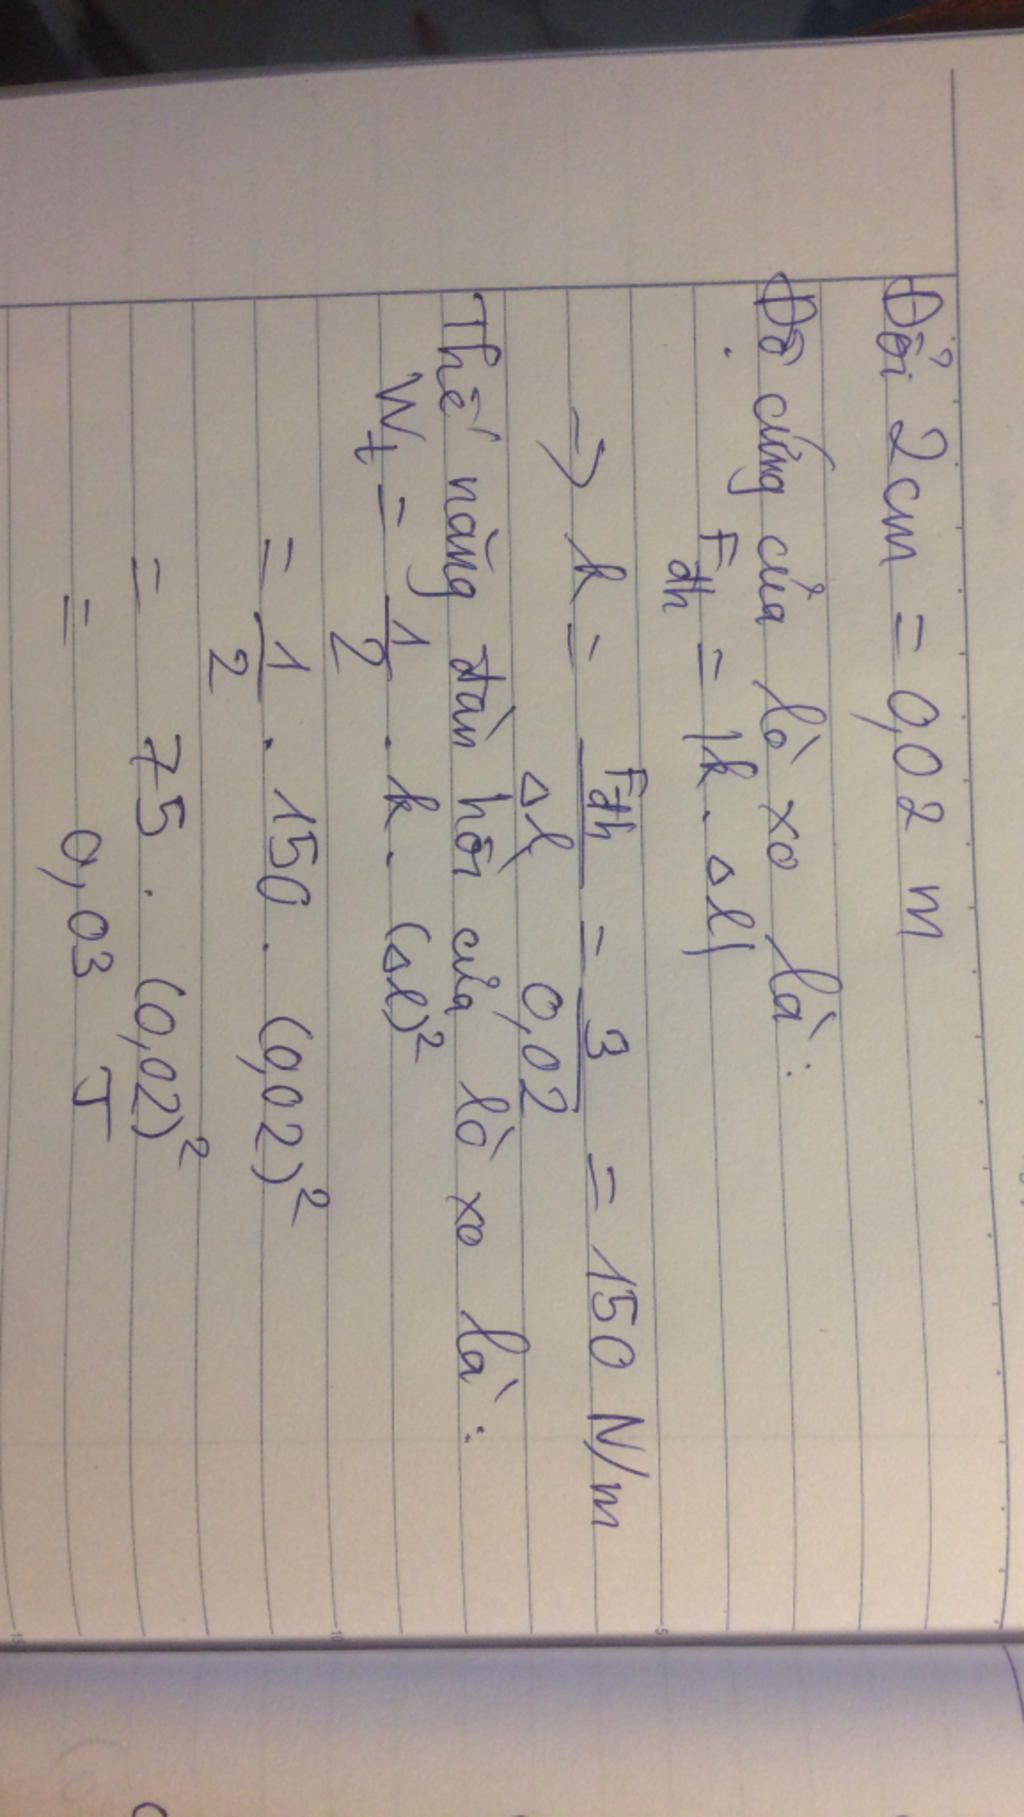 Đổi 2cm = 0,02 m
Độ cứng của lò xo là :
Fđh = |k . Δl|
=> k = Fđh / Δl = 3 / 0,02 = 150 N/m
Thế năng đàn hồi của lò xo là :
Wt = 1/2 . k . (Δl)²
= 1/2 . 150 . (0,02)²
= 75 . (0,02)²
= 0,03 J
5
10
15